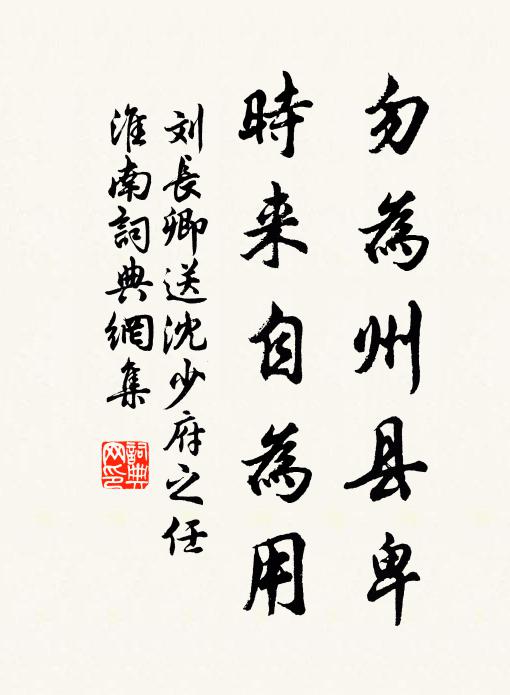 勿為州县卑
時来自為用
刘長卿送沈少府之任
淮南詞典網集
詞典网印